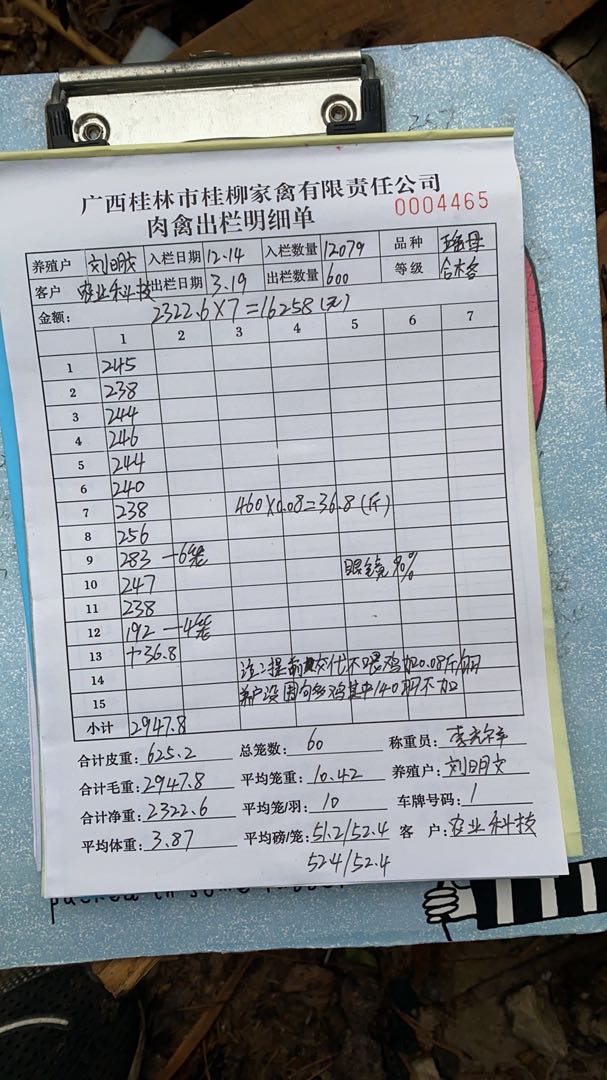 广西桂林市桂柳家禽有限责任公司
肉禽出栏明细单 0004465
养殖户 刘明文 入栏日期 12.14 入栏数量 12079 品种
客户 农业科技 出栏日期 3.19 出栏数量 600 等级 合格
金额: 2322.6×7=16258(元)
1 2 3 4 5 6 7
1 245
2 238
3 244
4 246
5 244
6 240
7 238 460×0.08=36.8(斤)
8 256
9 283 -6笼 眼镜90%
10 247
11 238
12 192 -4笼
13 +36.8
14 注:提前交代不喂鸡加0.08斤/羽
15 养户没 鸡其中140羽不加
小计 2947.8
合计皮重:625.2 总笼数:60 称重员:
合计毛重:2947.8 平均笼重:10.42 养殖户:刘明文
合计净重:2322.6 平均笼/羽:10 车牌号码:1
平均体重:3.87 平均磅/笼:51.2/52.4 客 户:农业科技
52.4/52.4